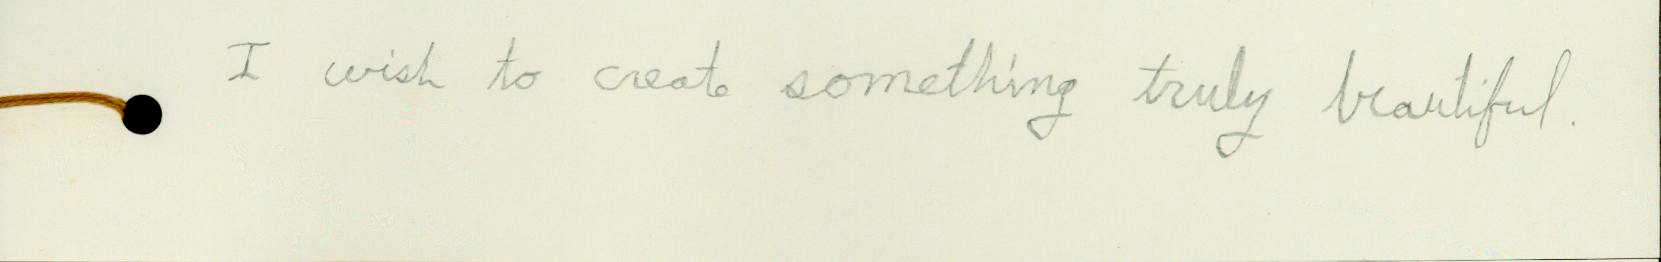 I wish to create something truly beautiful.